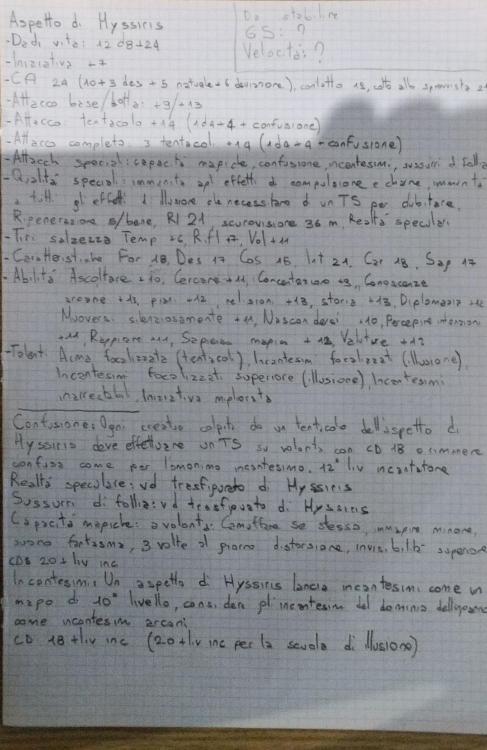 Aspetto di Hyssiris
Da stabilire
GS: ?
Velocità: ?
- Dadi vita: 12 d8+24
- Iniziativa +7
- CA 24 (10+3 des + 5 naturale + 6 deviazione), contatto 19, colto alla sprovvista 21
- Attacco base/lotta: +9/+13
- Attacco: tentacolo +14 (1d4+4 + confusione)
- Attacco completo: 3 tentacoli +14 (1d4+4 + confusione)
- Attacchi speciali: capacità magiche, confusione, incantesimi, sussurri di follia
- Qualità speciali: immunità agli effetti di compulsione e charme, immunità
a tutti gli effetti di illusione che necessitano di un TS per dubitare,
Rigenerazione 5/bene, RI 21, scurovisione 36 m, Realtà speculari
- Tiri salvezza Temp +6, Rifl +7, Vol +11
- Caratteristiche For 18, Des 17 Cos 15, Int 21, Car 18, Sag 17
- Abilità Ascoltare +10, Cercare +11, Concentrazione +9, Conoscenze
arcane +13, piani +12, religioni +13, storia +13, Diplomazia +12
Muoversi silenziosamente +11, Nascondersi +10, Percepire intenzioni
+11, Raggirare +11, Sapienza magica +12, Valutare +12
- Talenti Arma focalizzata (tentacoli), Incantesimi focalizzati (illusione),
Incantesimi focalizzati superiore (illusione), Incantesimi
inarrestabili, Iniziativa migliorata
Confusione: Ogni creatura colpita da un tentacolo dell'aspetto di
Hyssiris deve effettuare un TS su volontà con CD 18 o rimanere
confusa come per l'omonimo incantesimo. 12° liv incantatore
Realtà speculare: vd trasfigurato di Hyssiris
Sussurri di follia: vd trasfigurato di Hyssiris
Capacità magiche: a volontà: Camuffare se stesso, immagine minore,
suono fantasma, 3 volte al giorno distorsione, invisibilità superiore
CDs 20 + liv inc
Incantesimi: Un aspetto di Hyssiris lancia incantesimi come un
mago di 10° livello, considera gli incantesimi del dominio dell'inganno
come incantesimi arcani
CD 18 + liv inc (20 + liv inc per la scuola di illusione)